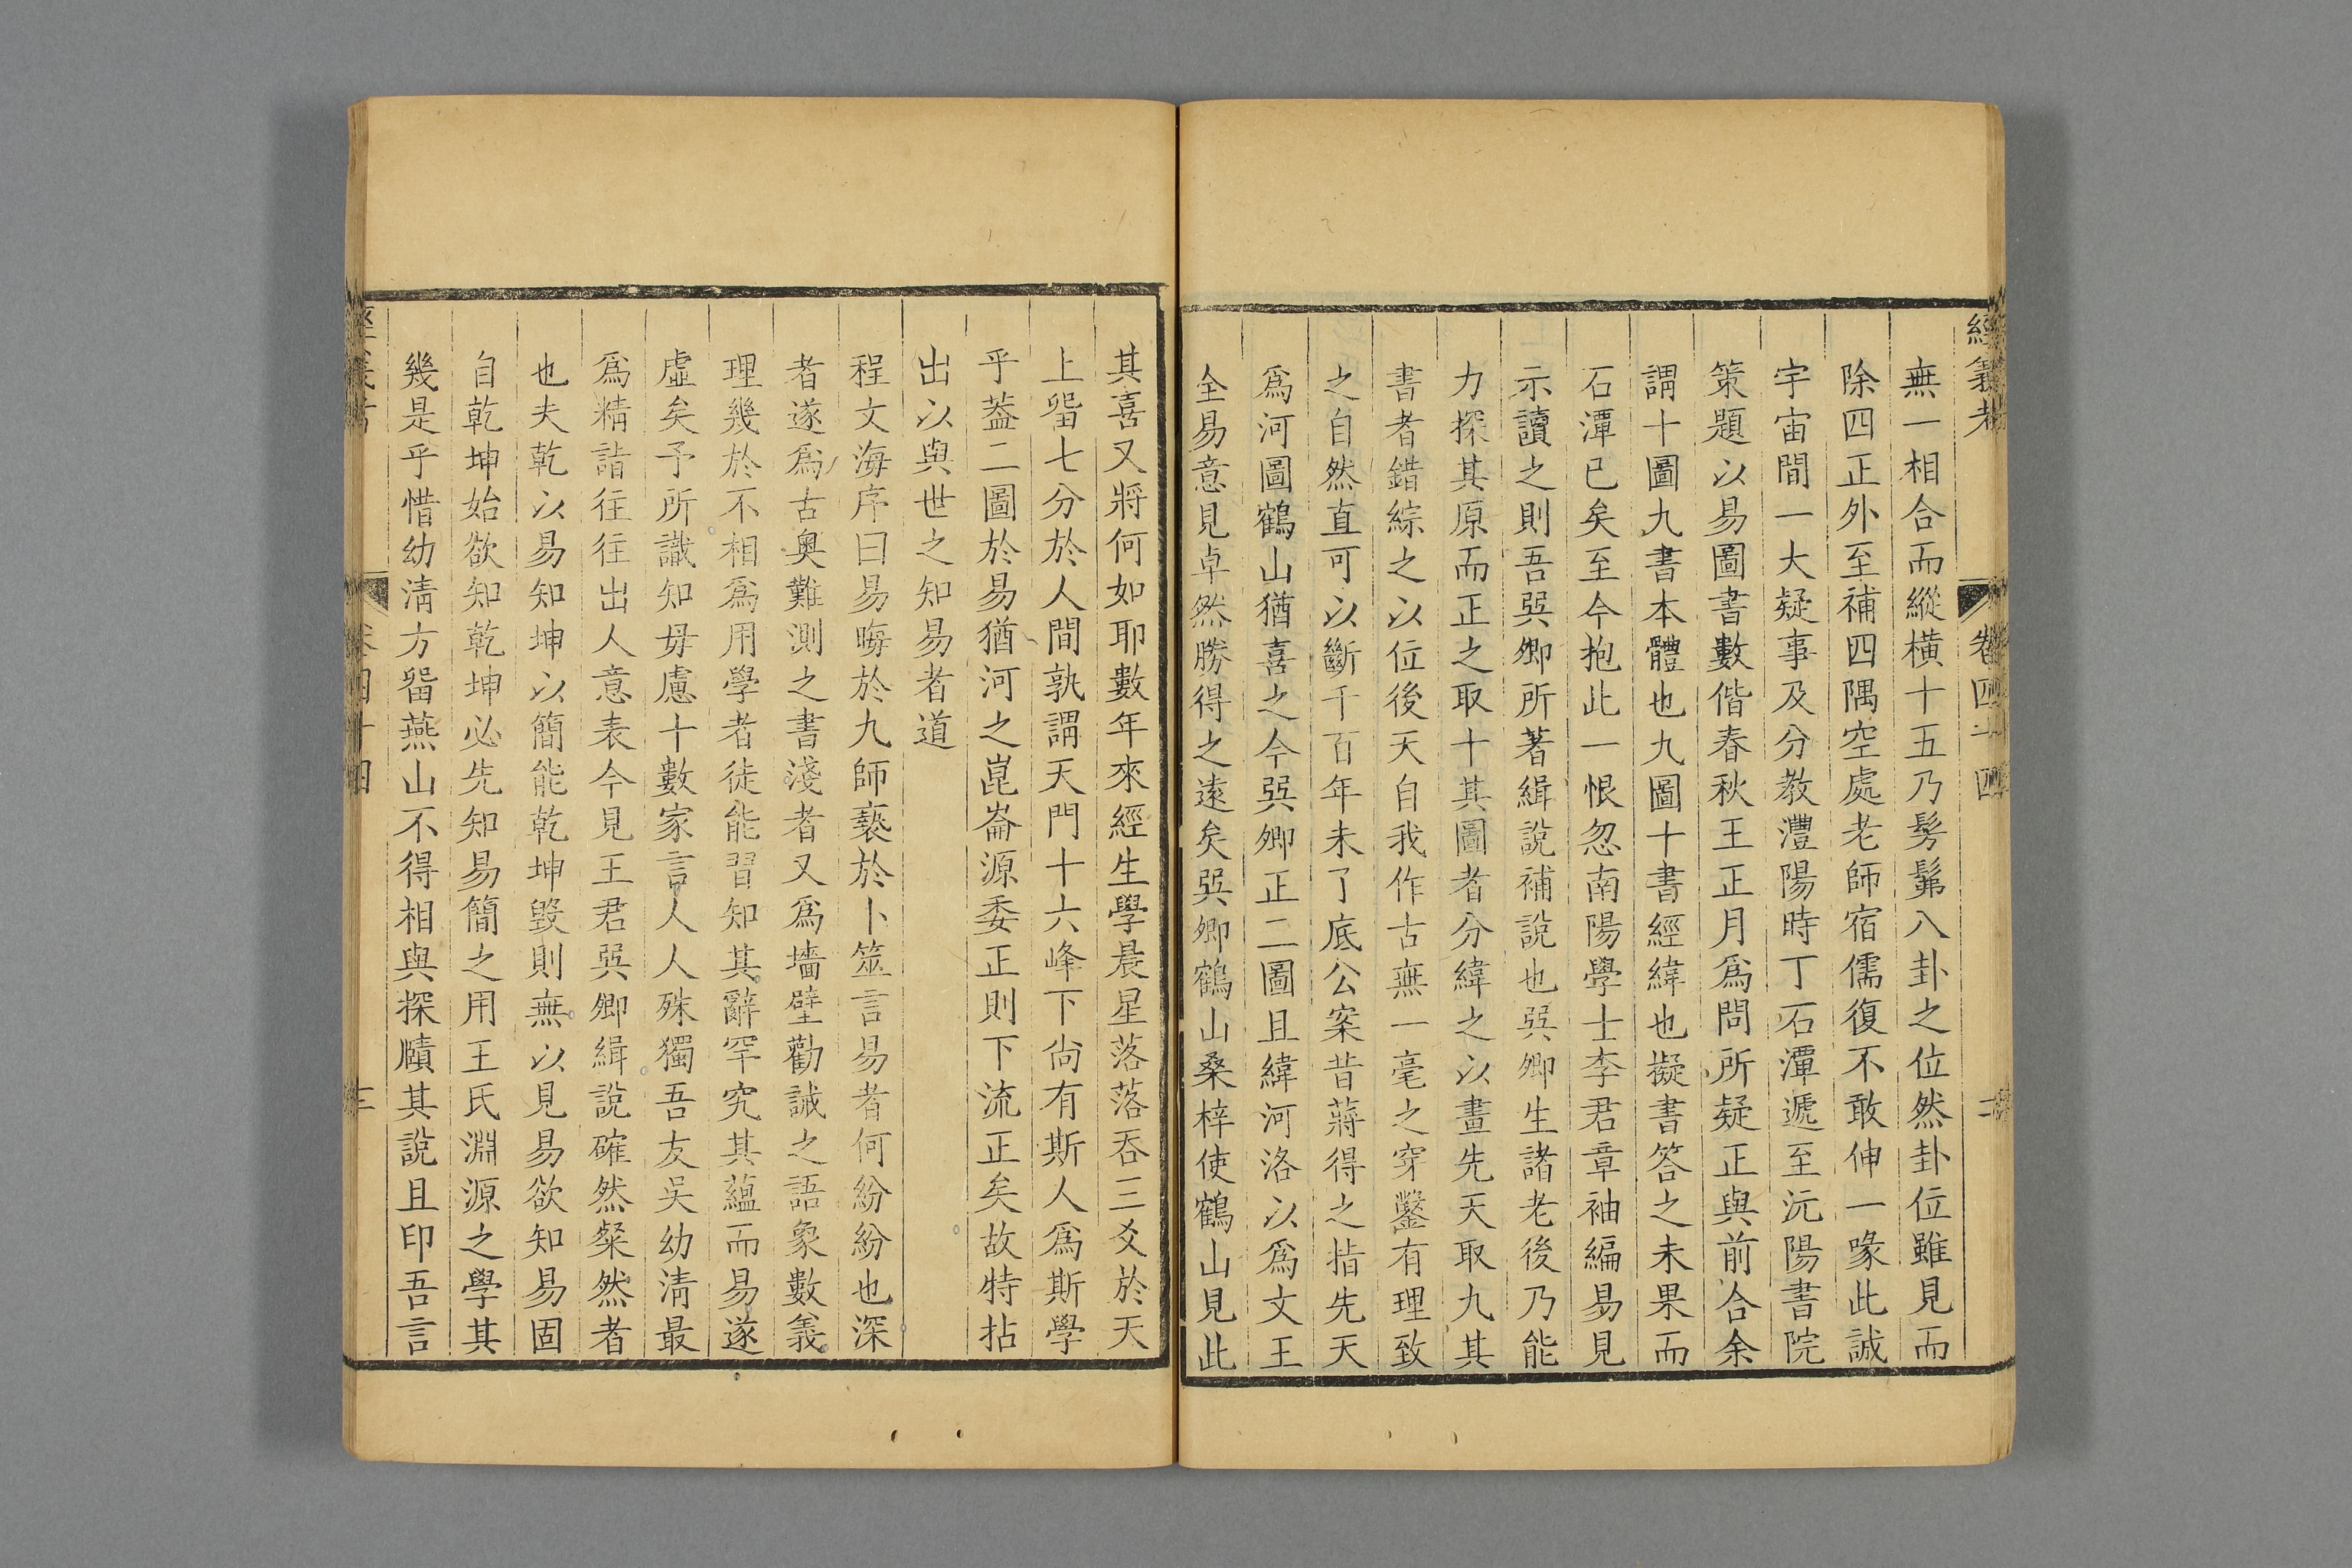 經義考 卷四十四 二
無一相合而縱橫十五乃髣髴八卦之位然卦位雖見而
除四正外至補四隅空處老師宿儒復不敢伸一喙此誠
宇宙間一大疑事及分教澧陽時丁石潭遞至沅陽書院
策題以易圖書數偕春秋王正月爲問所疑正與前合余
謂十圖九書本體也九圖十書經緯也擬書答之未果而
石潭已矣至今抱此一恨忽南陽學士李君章袖編易見
示讀之則吾巽卿所著緝說補說也巽卿生諸老後乃能
力探其原而正之取十其圖者分緯之以畫先天取九其
書者錯綜之以位後天自我作古無一毫之穿鑿有理致
之自然直可以斷千百年未了底公案昔蔣得之指先天
爲河圖鶴山猶喜之今巽卿正二圖且緯河洛以爲文王
全易意見卓然勝得之遠矣巽卿鶴山桑梓使鶴山見此
其喜又將何如耶數年來經生學晨星落落吞三爻於天
上畱七分於人間孰謂天門十六峰下尙有斯人爲斯學
乎葢二圖於易猶河之崑崙源委正則下流正矣故特拈
出以與世之知易者道
程文海序曰易晦於九師褻於卜筮言易者何紛紛也深
者遂爲古奧難測之書淺者又爲墻壁勸誡之語象數義
理幾於不相爲用學者徒能習知其辭罕究其蘊而易遂
虛矣予所識知毋慮十數家言人人殊獨吾友吳幼淸最
爲精詣往往出人意表今見王君巽卿緝說確然粲然者
也夫乾以易知坤以簡能乾坤毀則無以見易欲知易固
自乾坤始欲知乾坤必先知易簡之用王氏淵源之學其
幾是乎惜幼淸方畱燕山不得相與探賾其說且印吾言
經義考 卷四十四 三